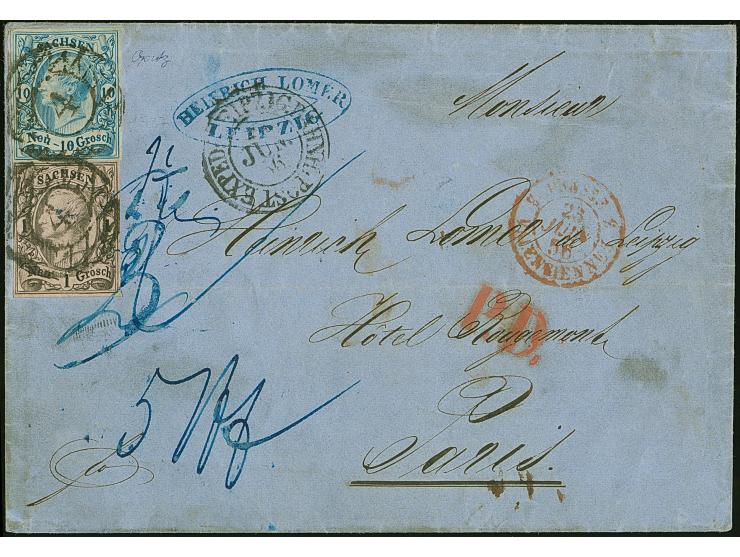 SACHSEN
10 10
Neu - 10 Grosch
SACHSEN
1 1
Neu 1 Grosch
HEINRICH LOMER
LEIPZIG
LEIPZIG
JUN.
POST EXPED
Monsieur
Heinrich Lomer de Leipzig
Hôtel Rougemont
Paris.
PRUSSE
23
JUIN
56
VALENCIENNES
P.D.